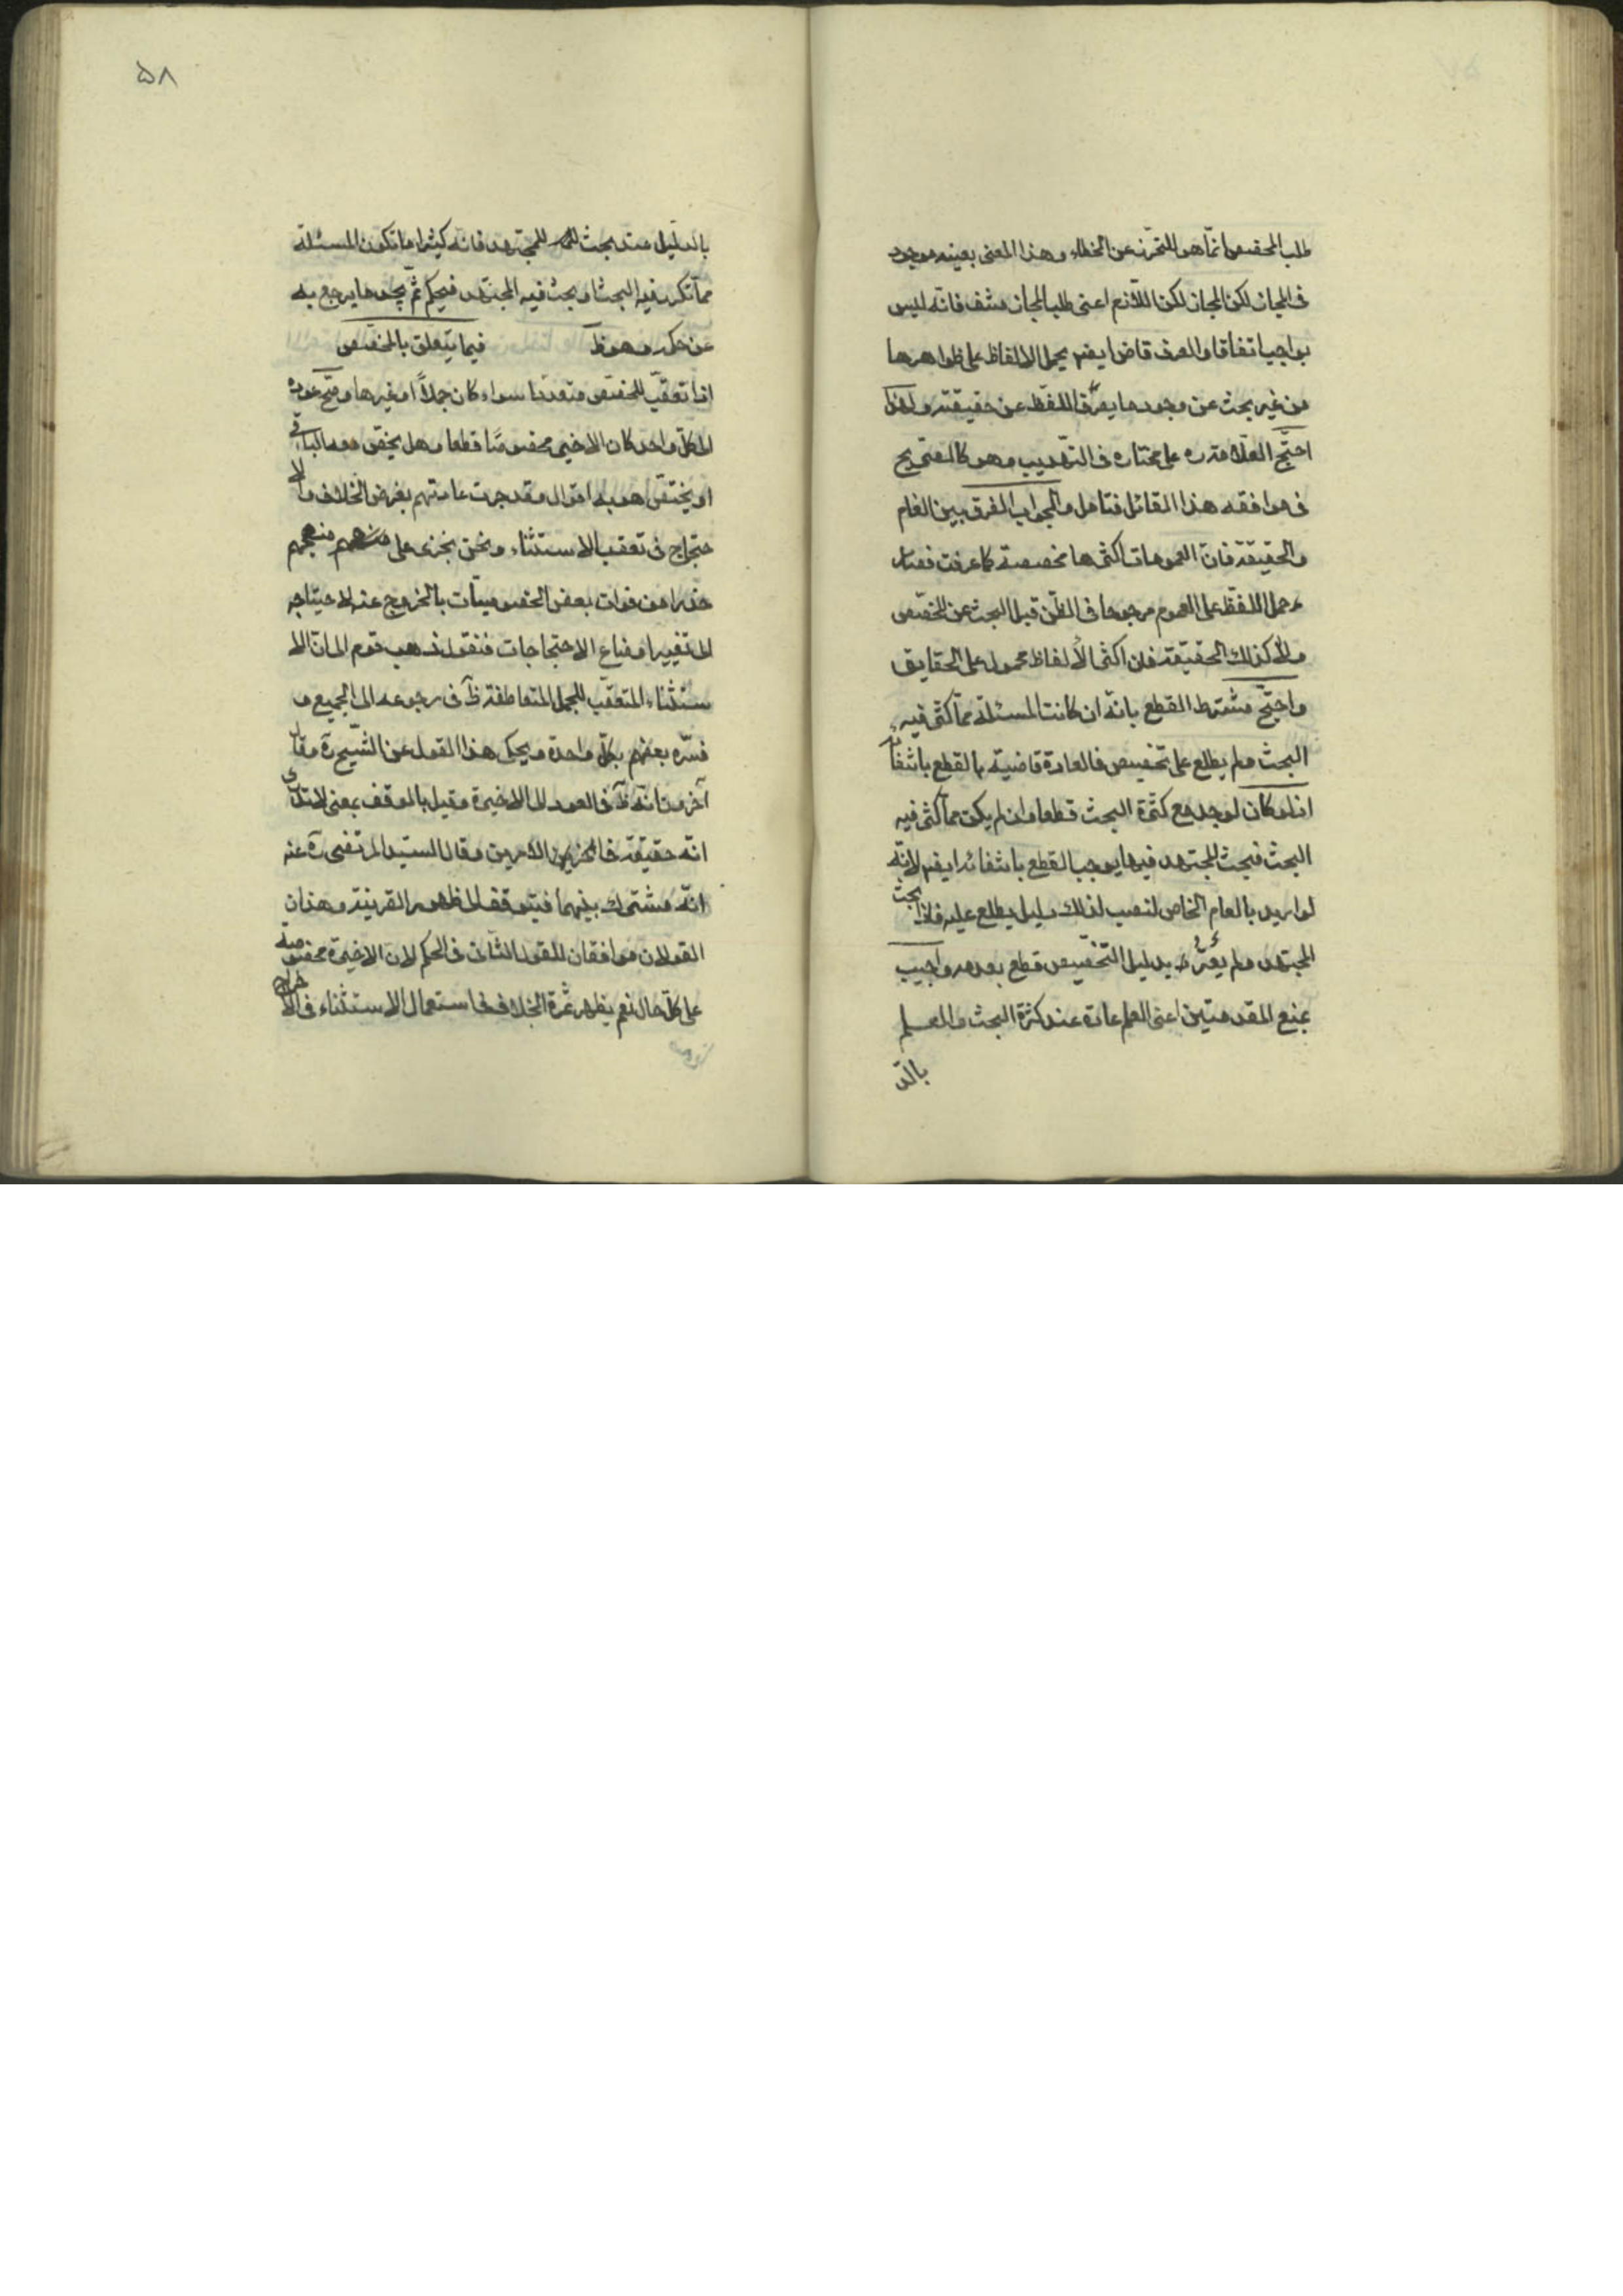 طلب المخصص انّما هو للتحرّز عن الخطاء وهذا المعنى بعينه موجود
فى المجاز لكن المجاز لكن اللّازم اعنى طلب المجاز منتف فانّه ليس
بواجب اتفاقا والعرف قاض ايضم بحمل الالفاظ على ظواهرها
من غير بحث عن وجود ما يصرف اللفظ عن حقيقته ولهذا
احتجّ العلّامة ره على مختاره فى التهذيب وهو كالصّريح
فى موافقه هذا القائل فتامل والجواب الفرق بين العام
والحقيقة فانّ العمومات اكثرها مخصصة كما عرفت فصار
حمل اللفظ على العموم مرجوحا فى الظّن قبل البحث عن المخصّص
ولا كذلك الحقيقة فان اكثر الألفاظ محمول على الحقايق
واحتجّ مشترط القطع بانّه ان كانت المسئلة ممّا كثر فيه
البحث ولم يطلع على تخصيص فالعادة قاضية بالقطع بانتفائه
اذ لو كان لوجد مع كثرة البحث قطعا وان لم يكن ممّا كثر فيه
البحث فبحث المجتهد فيها يوجب القطع بانتفائه ايضم لانّه
لو اريد بالعام الخاص لنصب لذلك دليل يطلع عليه فاذا بحث
المجتهد ولم يعثر بدليل التخصيص قطع بعدمه واجيب
بمنع المقدمتين اعنى العلم عادة عند كثرة البحث والعلم
بالد
۵۸
بالدليل عند بحث المجتهد فانه كثيرا ما تكون المسئلة
ممّا تكرر فيه البحث او بحث فيه المجتهد فيحكم ثمّ يجد ما يرجع به
عن حكمه وهو ظ فيما يتعلق بالمخصّص
اذا تعقّب المخصّص متعددا سواء كان جملاً او غيرها وصحّ عوده
الى كلّ واحد كان الاخير مخصوصًا قطعا وهل يخصّ معه الباقى
او يختصّ هو به اقوال وقد جرت عادتهم بفرض الخلاف والا
حتجاج فى تعقب الاستثناء ونحن نجرى على منهجهم
حذرا من فوات بعض الخصوصيّات بالخروج عنه لاحتياجه
الى تغيير اوضاع الاحتجاجات فنقول ذهب قوم الى انّ الا
ستثناء المتعقّب للجمل المتعاطفة ظ فى رجوعه الى الجميع و
فسّره بعضهم بكلّ واحدة ويحكى هذا القول عن الشّيخ ره وقال
آخرون انّه ظ فى العود الى الاخيرة وقيل بالوقف بمعنى لا ندرى
انّه حقيقة فى اىّ الامرين وقال السّيد المرتضى ره عنه
انّه مشترك بينهما فيتوقف الى ظهور القرينة وهذان
القولان موافقان للقول الثّانى فى الحكم لان الاخيرة مخصوصة
على كلّ حال نعم يظهر ثمرة الخلاف فى استعمال الاستثناء فى الاخراج